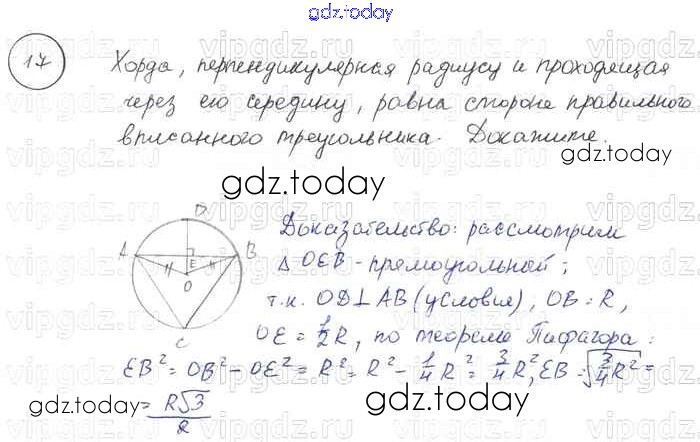 gdz.today
17
Хорда, перпендикулярная радиусу и проходящая
через его середину, равна стороне правильного
вписанного треугольника. Докажите.
gdz.today
gdz.today
D
A
B
E
O
C
Доказательство: рассмотрим
△OEB-прямоугольный;
т.к. OD⊥AB (условия), OB=R,
OE = 1/2R, по теореме Пифагора:
EB²=OB²-OE²=R²=R²-1/4R²=3/4R², EB=√3/4R²=
=R√3/2
gdz.today
vipgdz.ru